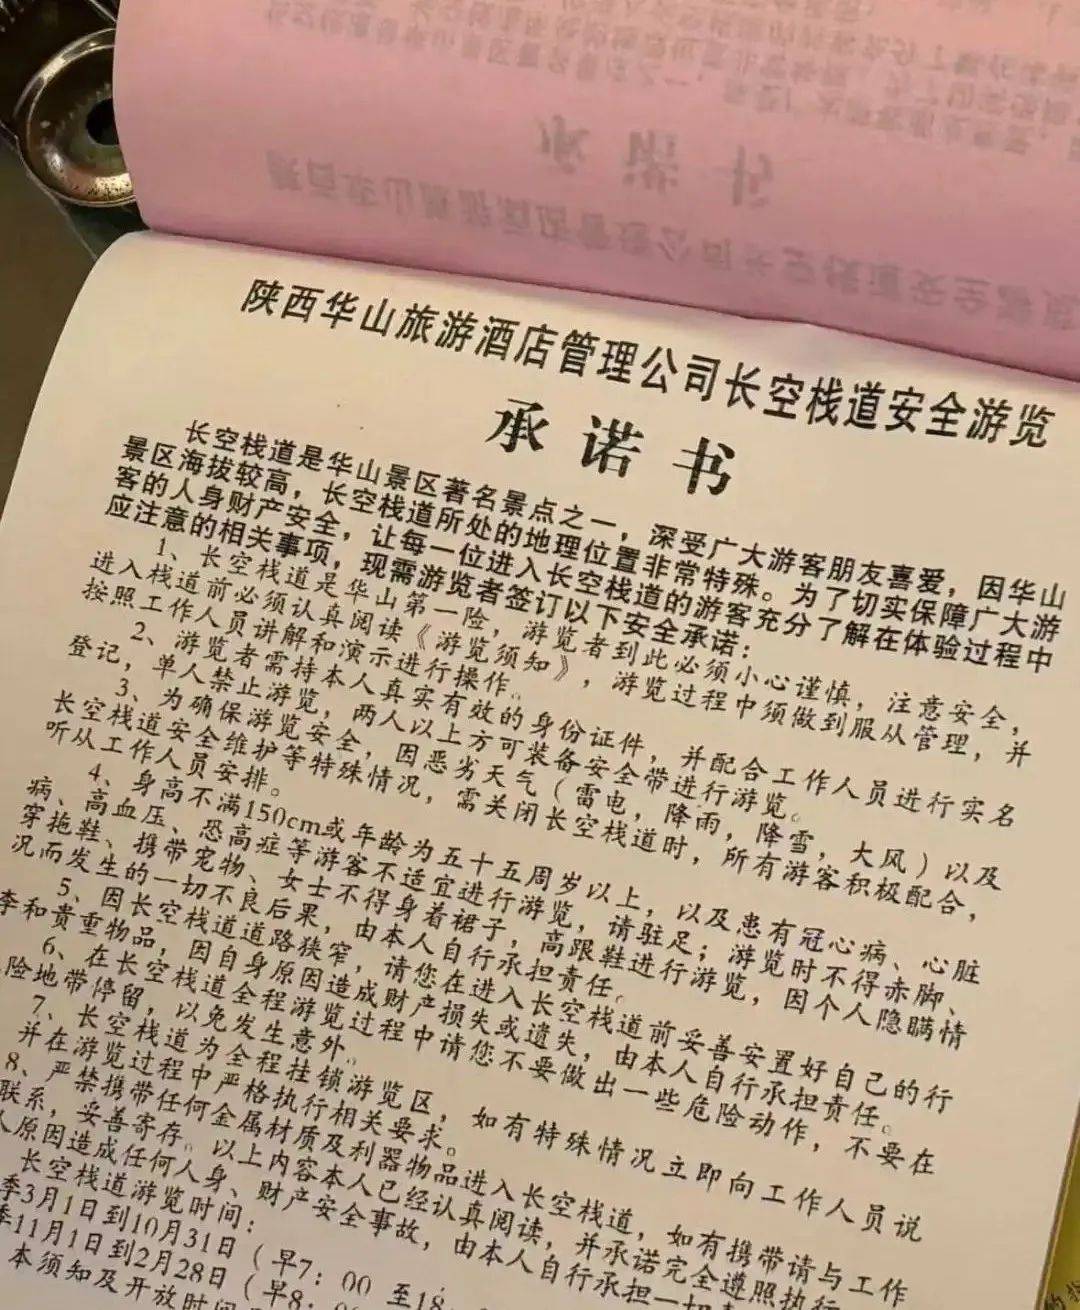 陕西华山旅游酒店管理公司长空栈道安全游览
承诺书
长空栈道是华山景区著名景点之一，深受广大游客朋友喜爱，因华山
景区海拔较高，长空栈道所处的地理位置非常特殊。为了切实保障广大游
客的人身财产安全，让每一位进入长空栈道的游客充分了解在体验过程中
应注意的相关事项，现需游览者签订以下安全承诺：
1、长空栈道是华山第一险，游览者到此必须小心谨慎，注意安全，
进入栈道前必须认真阅读《游览须知》，游览过程中须做到服从管理，并
按照工作人员讲解和演示进行操作。
2、游览者需持本人真实有效的身份证件，并配合工作人员进行实名
登记，单人禁止游览，两人以上方可装备安全带进行游览。
3、为确保游览安全，因恶劣天气（雷电，降雨，降雪，大风）以及
长空栈道安全维护等特殊情况，需关闭长空栈道时，所有游客积极配合，
听从工作人员安排。
4、身高不满150cm或年龄为五十五周岁以上，以及患有冠心病、心脏
病、高血压、恐高症等游客不适宜进行游览，请驻足；游览时不得赤脚、
穿拖鞋、携带宠物、女士不得身着裙子，高跟鞋进行游览，因个人隐瞒情
况而发生的一切不良后果，由本人自行承担责任。
5、因长空栈道道路狭窄，请您在进入长空栈道前妥善安置好自己的行
李和贵重物品，因自身原因造成财产损失或遗失，由本人自行承担责任。
6、在长空栈道全程游览过程中请您不要做出一些危险动作，不要在
险地带停留，以免发生意外。
7、长空栈道为全程挂锁游览区，如有特殊情况立即向工作人员说
并在游览过程中严格执行相关要求。
8、严禁携带任何金属材质及利器物品进入长空栈道，如有携带请与工作
联系，妥善寄存。以上内容本人已经认真阅读，并承诺完全遵照执行
人原因造成任何人身、财产安全事故，由本人自行承担一切
长空栈道游览时间：
季3月1日到10月31日（早7：00 至18
季11月1日到2月28日（早8：
本须知及开放时间